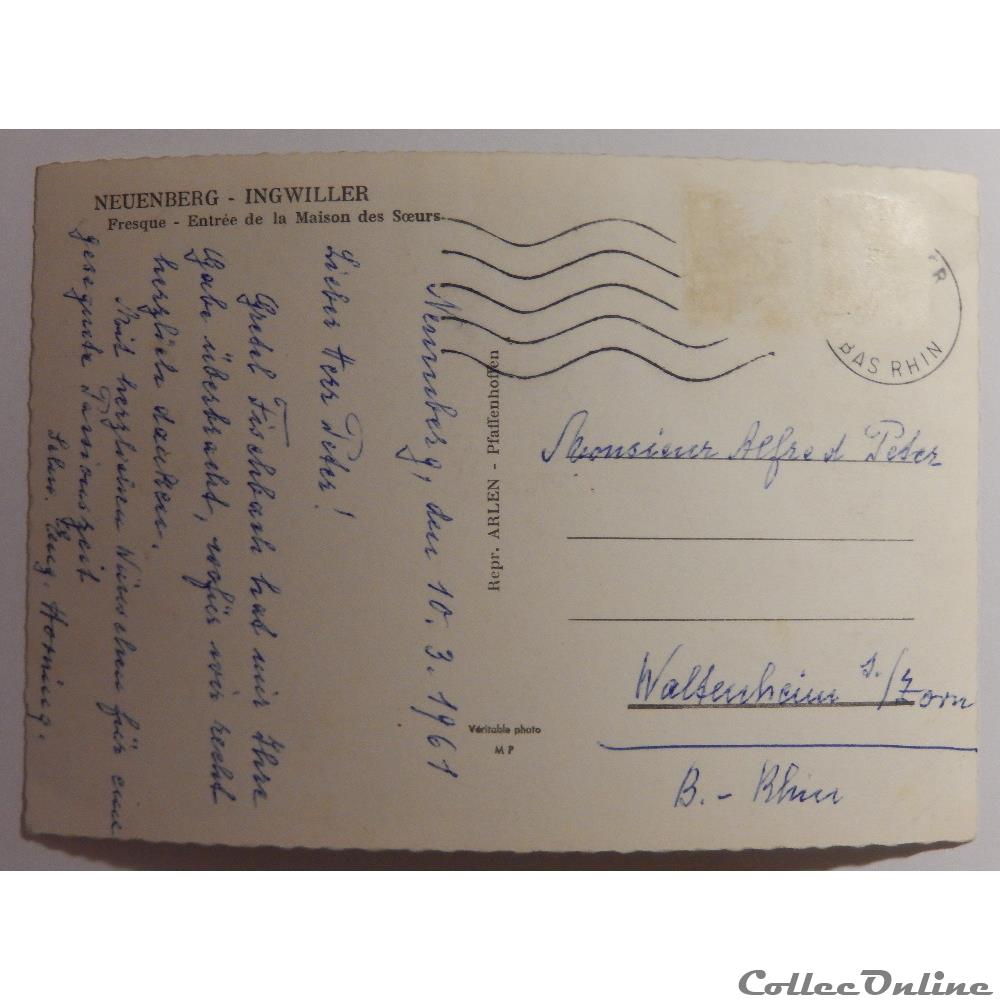 NEUENBERG - INGWILLER
Fresque - Entrée de la Maison des Sœurs
Neuenberg, den 10. 3. 1961
Lieber Herr Peter!
Gretel Fischbach hat mir Ihre
Gabe überbracht, wofür wir recht
herzlich danken.
Mit herzlichen Wünschen für eine
gesegnete Passionszeit
Schw. Aug. Horning.
Repr. ARLEN - Pfaffenhoffen
Véritable photo
MP
BAS RHIN
Monsieur Alfred Peter
Waltenheim s./Zorn
B. - Rhin
CollecOnline